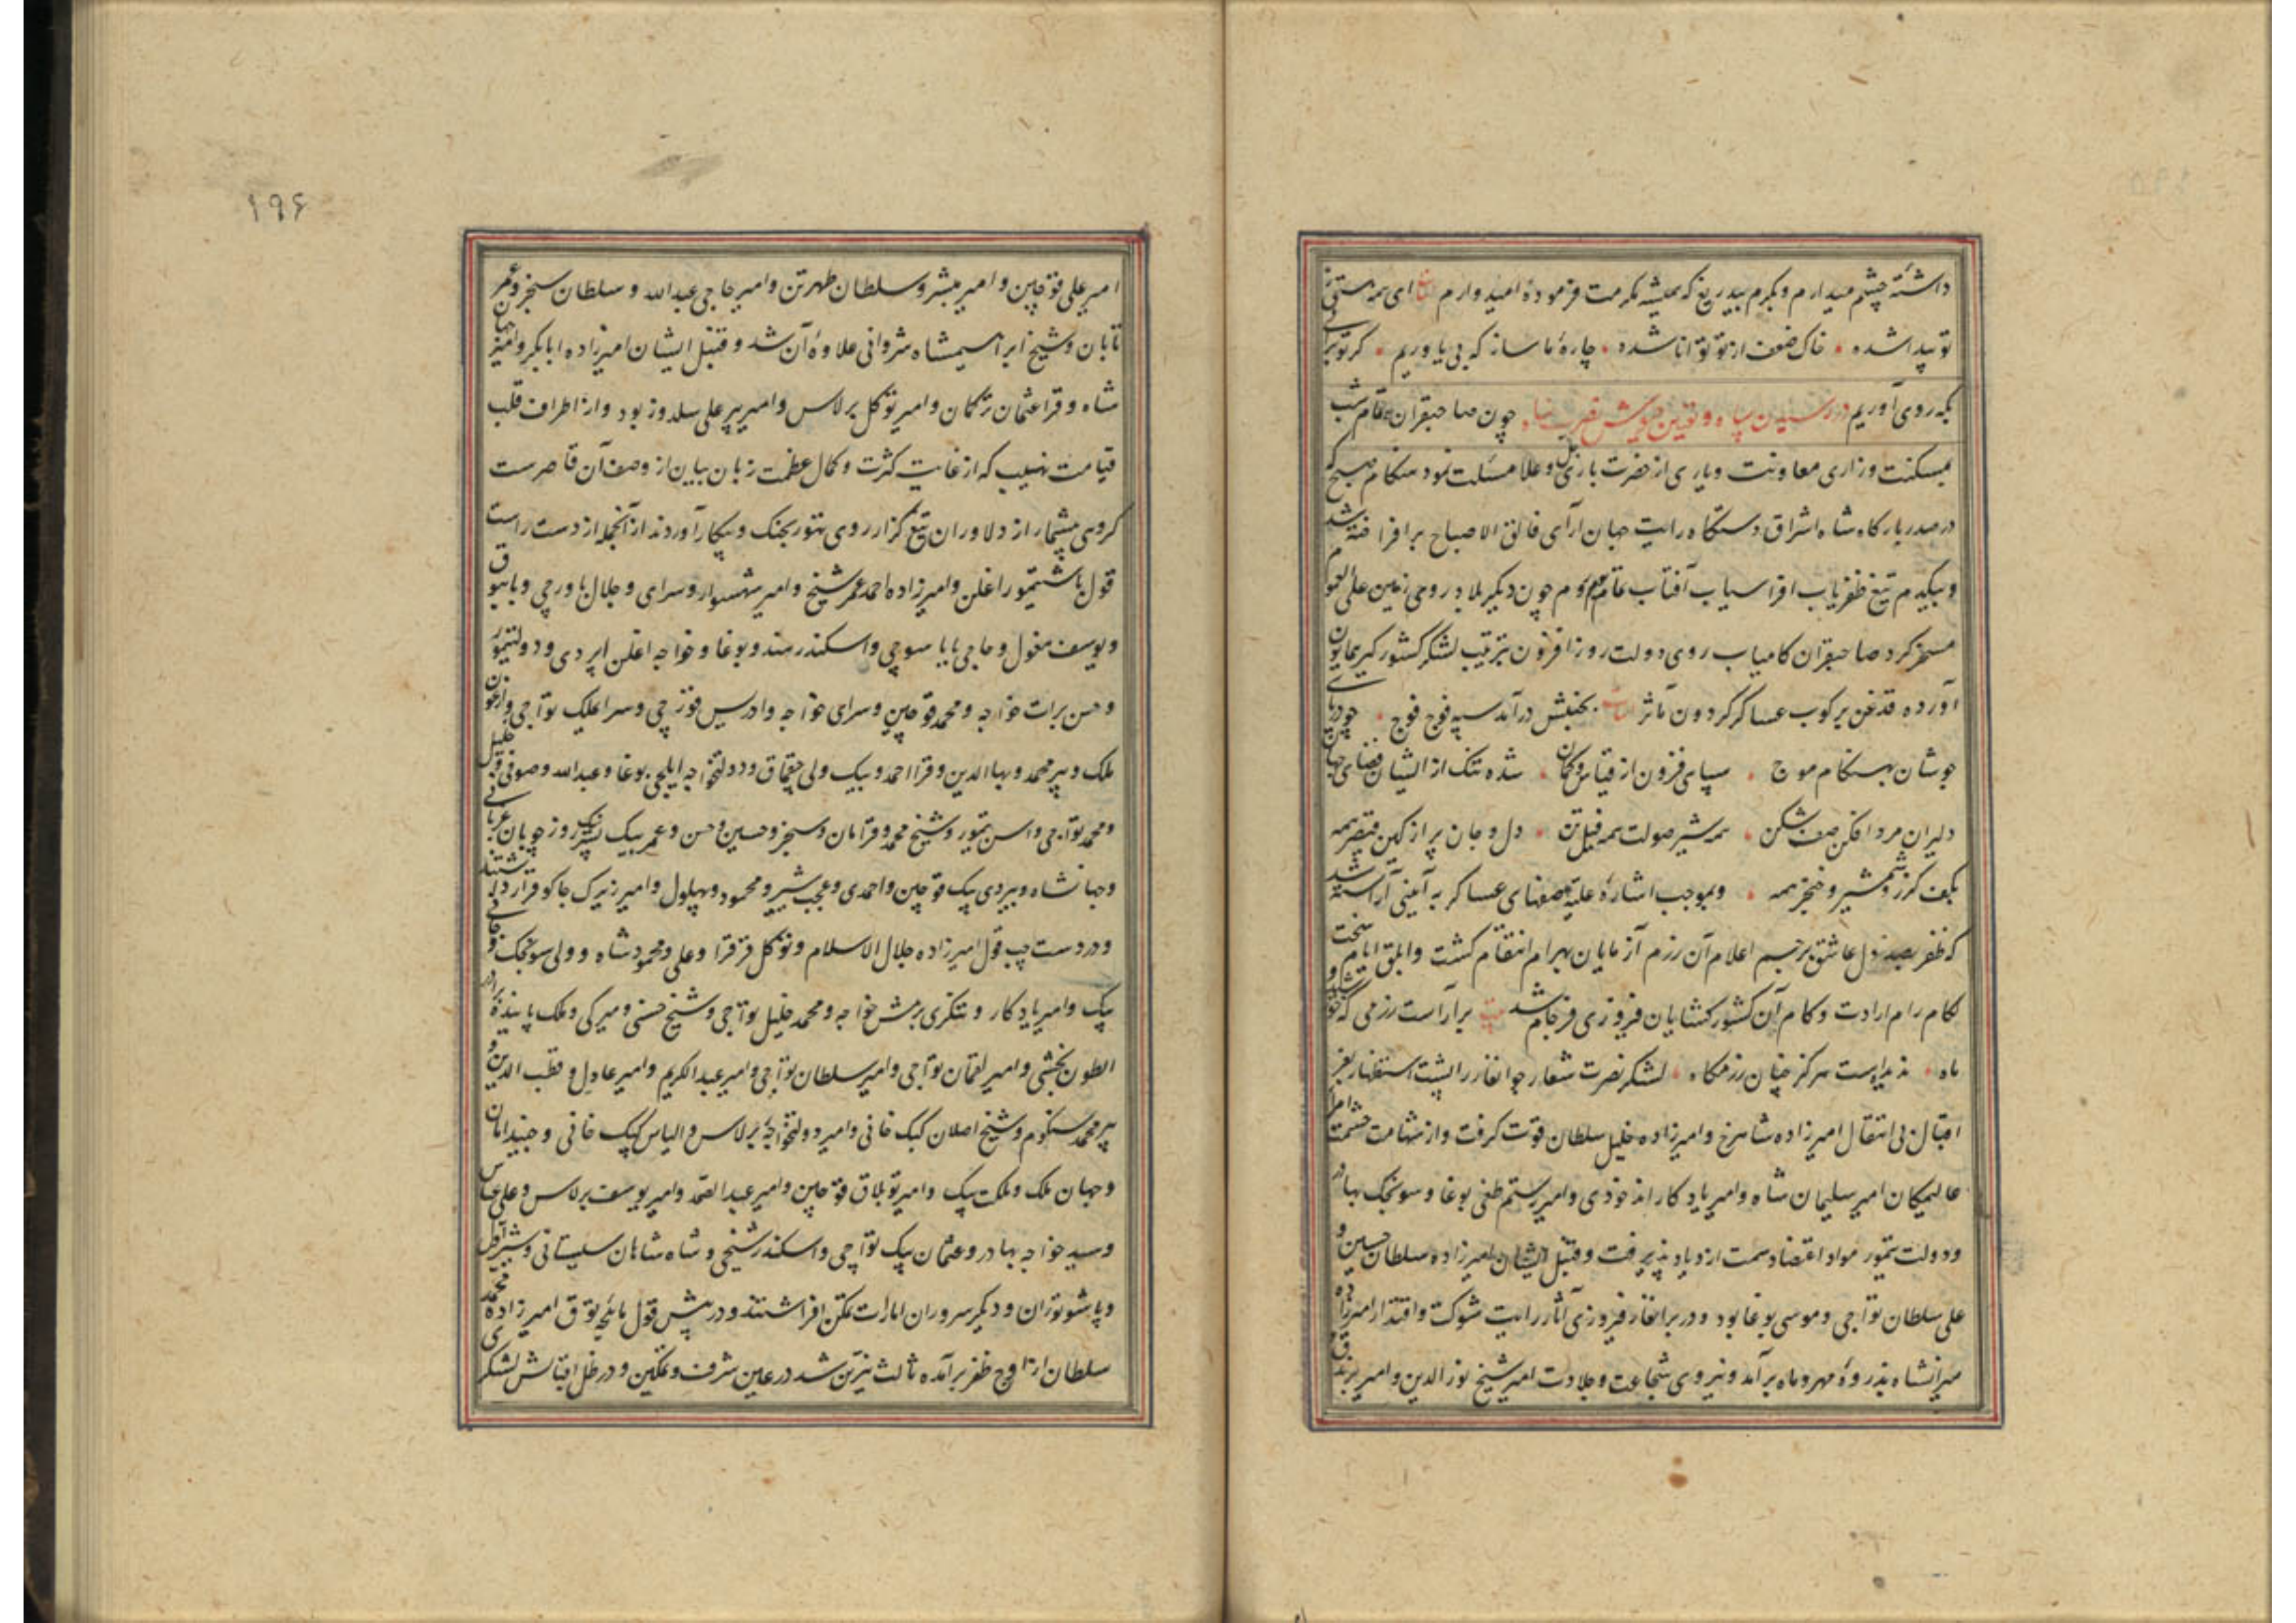 داشته چشم میدارم وبکرم بیدریغ که همیشه مکرمت فرموده امیدوارم ای همه هستی ز
تو پیدا شده خاک ضعیف از تو توانا شده چاره ما ساز که بی یاوریم گر تو برانی
بکه روی آوریم در رسیدن سپاه و چون صاحبقران شب
بمسکنت وزاری معاونت ویاری از حضرت باری جل وعلا مسئلت نمود هنکام صبح که
در صدر بارکاه شاه اشراق دستکاه رایت جهان آرای فالق الاصباح برافراخته شد
وبیکدم تیغ ظفریاب افراسیاب آفتاب چون دیگر بلاد روی زمین علی العموم
مسخر کرد صاحبقران کامیاب روی دولت روزافزون بترتیب لشکر کشورکیر همایون
آورده قدغن برکوب عساکر کردون مآثر بجنبش درآمد سپه فوج فوج چو دریای
جوشان بهنکام موج سپاهی فزون از قیاس وکمان شده تنک از ایشان فضای جهان
دلیران مردافکن صف شکن همه شیر صولت همه فیل تن دل وجان پر از کین قیصر همه
بکف کرز وشمشیر وخنجر همه وبموجب اشاره علیه صفهای عساکر به آیینی آراسته شد
که ظفر بصد دل عاشق پرچم اعلام آن رزم آزمایان بهرام انتقام کشت وابلق ایام
لکام رام ارادت وکام آن کشورکشایان فیروزی فرجام شد برآراست رزمی که خورشید و
ماه ندیدست هرکز چنان رزمکاه لشکر نصرت شعار جوانغار را پشت استظهار بفر
اقبال بی انتقال امیرزاده شاهرخ وامیرزاده خلیل سلطان قوت کرفت واز شهامت حشمت امرا
عالیمکان امیر سلیمان شاه وامیر یادکار اندخودی وامیر رستم طغی بوغا وسونجک بهادر
ودولت تیمور مواد اعتضاد سمت ازدیاد پذیرفت وقنبل ایشان امیرزاده سلطان حسین و
علی سلطان تواجی وموسی بوغا بود ودر برانغار فیروزی آثار رایت شوکت واقتدار امیرزاده
میرانشاه بذروه مهر وماه برآمد ونیروی شجاعت وجلادت امیر شیخ نورالدین وامیر برندق
۱۹۶
امیر علی قوچین وامیر مبشر وسلطان طهرتن وامیر حاجی عبدالله وسلطان سنجر وعمر
تابان وشیخ ابراهیمشاه شروانی علاوه آن شد وقنبل ایشان امیرزاده ابابکر وامیر جهان
شاه وقرا عثمان ترکمان وامیر توکل برلاس وامیر پیر علی سلدوز بود واز اطراف قلب
قیامت نهیب که از غایت کثرت وکمال عظمت زبان بیان از وصف آن قاصرست
کروهی بیشمار از دلاوران تیغ کزار روی تهور بجنک وپیکار آوردند از آنجمله از دست راست
قول باشتیمور اغلن وامیرزاده احمد عمر شیخ وامیر شهسوار وسرای وجلال باورچی
ویوسف مغول وحاجی بابا سوچی واسکندر هندوبوغا وخواجه اغلن اپردی ودولتیمور
وحسن برات خواجه ومحمد قوچین وسرای خواجه وادریس قورچی وسراملک تواجی وارغون
ملک وپیر محمد وبهاالدین وقرا احمد وبیک ولی قبچاق ودولتخواجه ایلچی بوغا وعبدالله وصوفی خلیل
ومحمد تواجی واسن تیمور وشیخ محمد وقرامان وسنجر وحسین وحسن وعمر بیک پسر نیک روز چوپان عربانی
وجهانشاه وبیردی بیک قوچین واحمدی وعجب شیر ومحمود وبهلول وامیر زیرک جاکو قرار داشتند
ودر دست چپ قول امیرزاده جلال الاسلام وتوکل قرقرا وعلی ومحمود شاه وولی سونجک
بیک وامیر یادکار وتنکری برمش خواجه ومحمد خلیل تواجی وشیخ حسنی ومیرکی وملک پاینده
الطون بخشی وامیر لقمان تواجی وامیر سلطان تواجی وامیر عبدالکریم وامیر عادل وقطب الدین و
پیر محمد شنکوم وشیخ اصلان کبک خانی وامیر دولتخواجه برلاس والیاس کپک خانی
وجهان ملک وملکت بیک وامیر توبلاق قوچین وامیر عبدالصمد وامیر یوسف برلاس وعلی عباس
وسید خواجه بهادر وعثمان بیک تواجی واسکندر شیخی وشاه شاهان سیستانی
ودیکر سروران امارات تمکن افراشتند ودر پیش قول امیرزاده محمد
سلطان از اوج ظفر برآمده ثالث نیرین شد در عین شرف وتمکین ودر ظل اقبالش لشکر